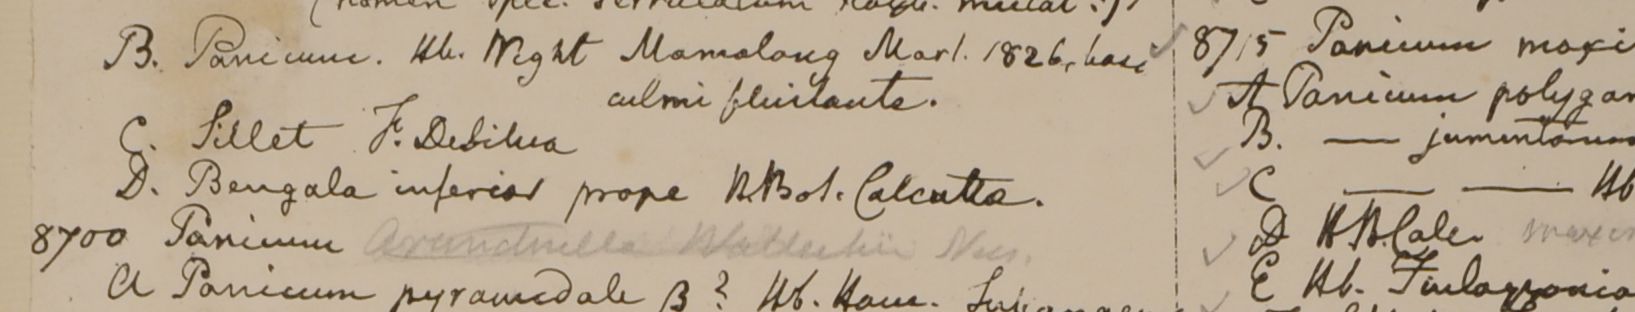 (nomen spec. serrulatum Roxb. mutat.)
B. Panicum. Hb. Wight Mamalong Mart. 1826, basi
culmi fluitante.
C. Sillet F. DeSilva
D. Bengala inferior prope H.Bot. Calcutta.
8700 Panicum Arundinella Wallichii Nees.
A Panicum pyramidale B? Hb. Ham.
8715 Panicum maxi
A Panicum polygam
B. — jumentorum
C — — Hb
D H.B.Calc. maxim
E Hb. Finlaysonia